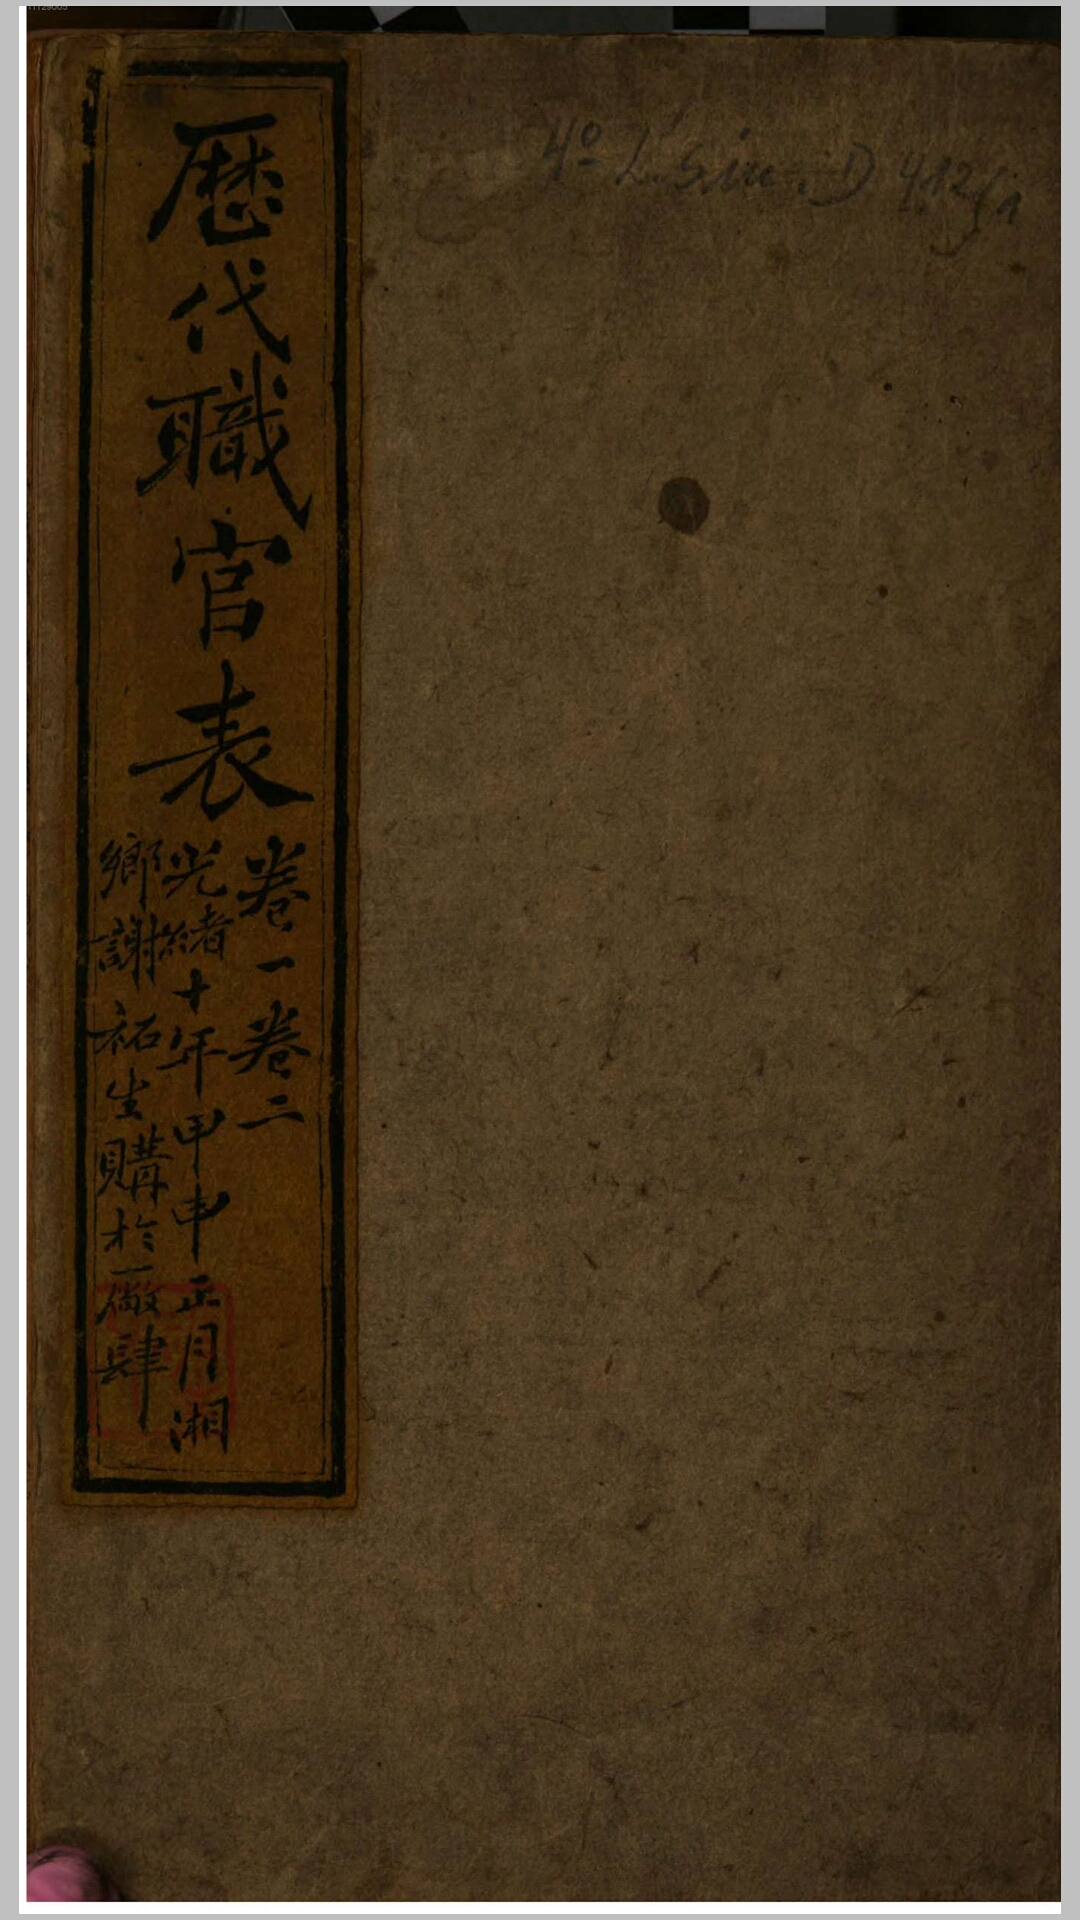 11129005
4º L. sin. D 412(1
歷代職官表
卷一卷二
光緒十年甲申正月湘
鄉謝祐生購於廠肆